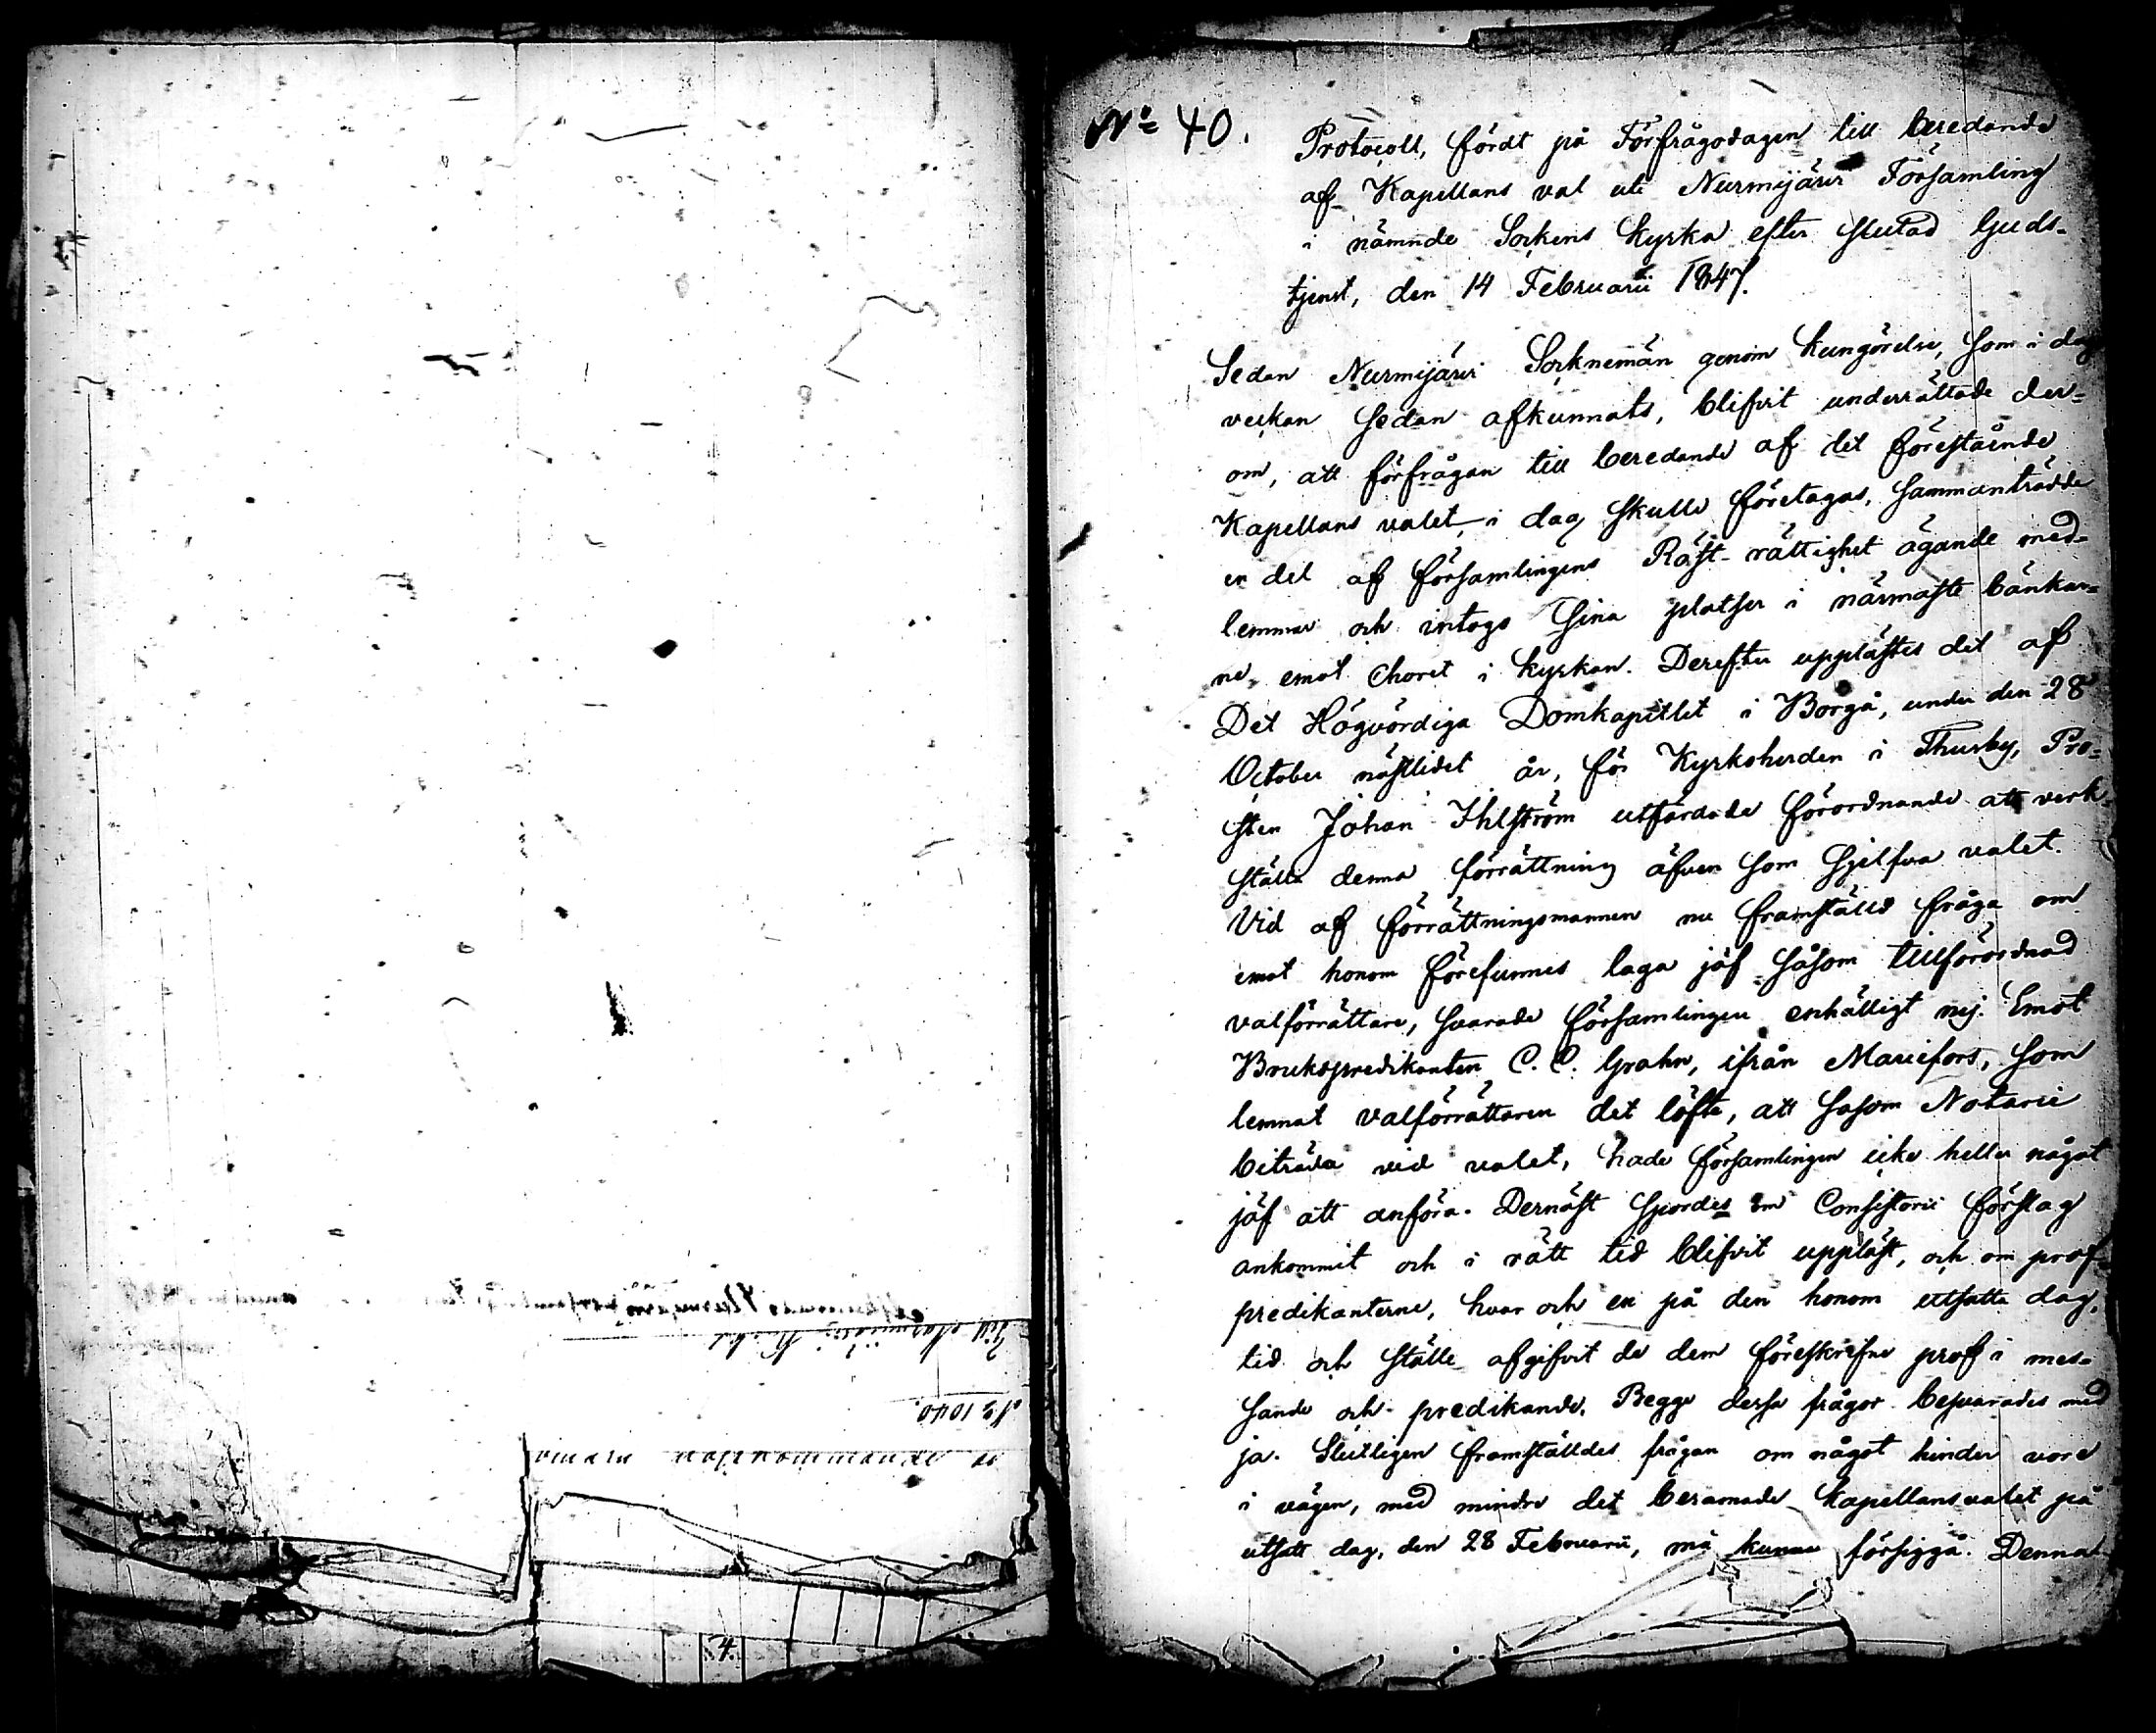 No 40.
Protocoll, fördt på Förfrågodagen till beredande
af Kapellans val uti Nurmijärvi Församling
i nämnde Sockens kyrka efter slutad Guds-
tjenst, den 14 Februarii 1847.
Sedan Nurmijärvi Socknemän genom kungörelse, som i dag
veckan sedan afkunnats, blifvit underrättade der-
om, att förfrågan till beredande af det förestående
Kapellans valet i dag skulle företagas, sammanträdde
en del af församlingens Röst-rättighet ägande med-
lemmar och intogo sina platser i närmaste bänkar-
ne emot Choret i kyrkan. Derefter upplästes det af
Det Högvördiga Domkapitlet i Borgå, under den 28
October nästlidet år, för Kyrkoherden i Thusby, Pro-
sten Johan Ihlström utfärdade förordnande att verk-
ställa denna förrättning äfven som sjelfva valet.
Vid af förrättningsmannen nu framställd fråga om
emot honom förefunnes laga jäf såsom tillförordnad
valförrättare, svarade församlingen enhälligt nej. Emot
Brukspredikanten C. C. Grahn, ifrån Mariefors, som
lemnat valförrättaren det löfte, att såsom Notarie
biträda vid valet, hade församlingen icke heller något
jäf att anföra. Dernäst spordes om Consistorii förslag
ankommit och i rätt tid blifvit uppläst, och om prof-
predikanterne, hvar och en på den honom utsatta dag,
tid och ställe afgifvit de dem föreskrifne prof i mes-
sande och predikande. Begge dessa frågor besvarades med
ja. Slutligen framställdes frågan om något hinder vore
i vägen, med mindre det beramade kapellansvalet på
utsatt dag, den 28 Februarii, må kunna försiggå. Denna
No 1040.
4